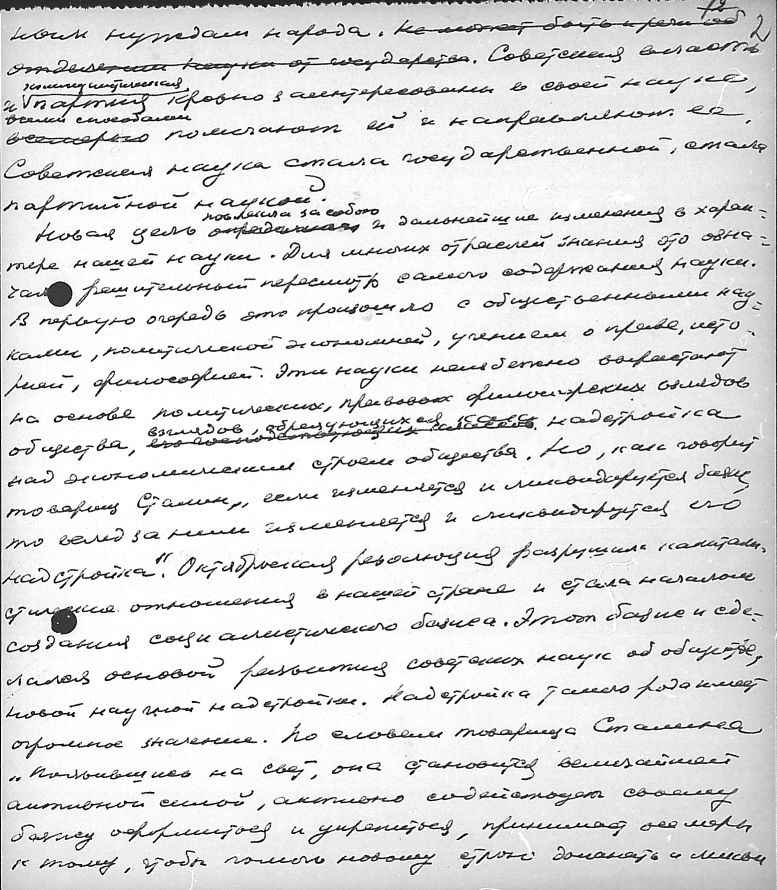 12
2
ным нуждам народа. Не может быть и речи об
отделении науки от государства. Советская власть
коммунистическая
и партия кровно заинтересованы в своей науке,
всеми способами
всемерно помогают ей и направляют ее.
Советская наука стала государственной, стала
партийной наукой.
повлекла за собою
Новая цель определила и дальнейшие изменения в харак-
тере нашей науки. Для многих отраслей знания это озна-
чало решительный пересмотр самого содержания науки.
В первую очередь это произошло с общественными нау-
ками, политической экономией, учением о праве, исто-
рией, философией. Эти науки неизбежно вырастают
на основе политических, правовых философских взглядов
взглядов, образующихся как
общества, его господствующих классов надстройка
над экономическим строем общества. Но, как говорит
товарищ Сталин, „если изменяется и ликвидируется базис
то вслед за ним изменяется и ликвидируется его
надстройка". Октябрьская революция разрушила капитали-
стические отношения в нашей стране и стала началом
создания социалистического базиса. Этот базис и сде-
лался основой развития советских наук об обществе,
новой научной надстройки. Надстройка такого рода имеет
огромное значение. По словам товарища Сталина
„Появившись на свет, она становится величайшей
активной силой, активно содействует своему
базису оформиться и укрепиться, принимает все меры
к тому, чтобы помочь новому строю доканать и ликви